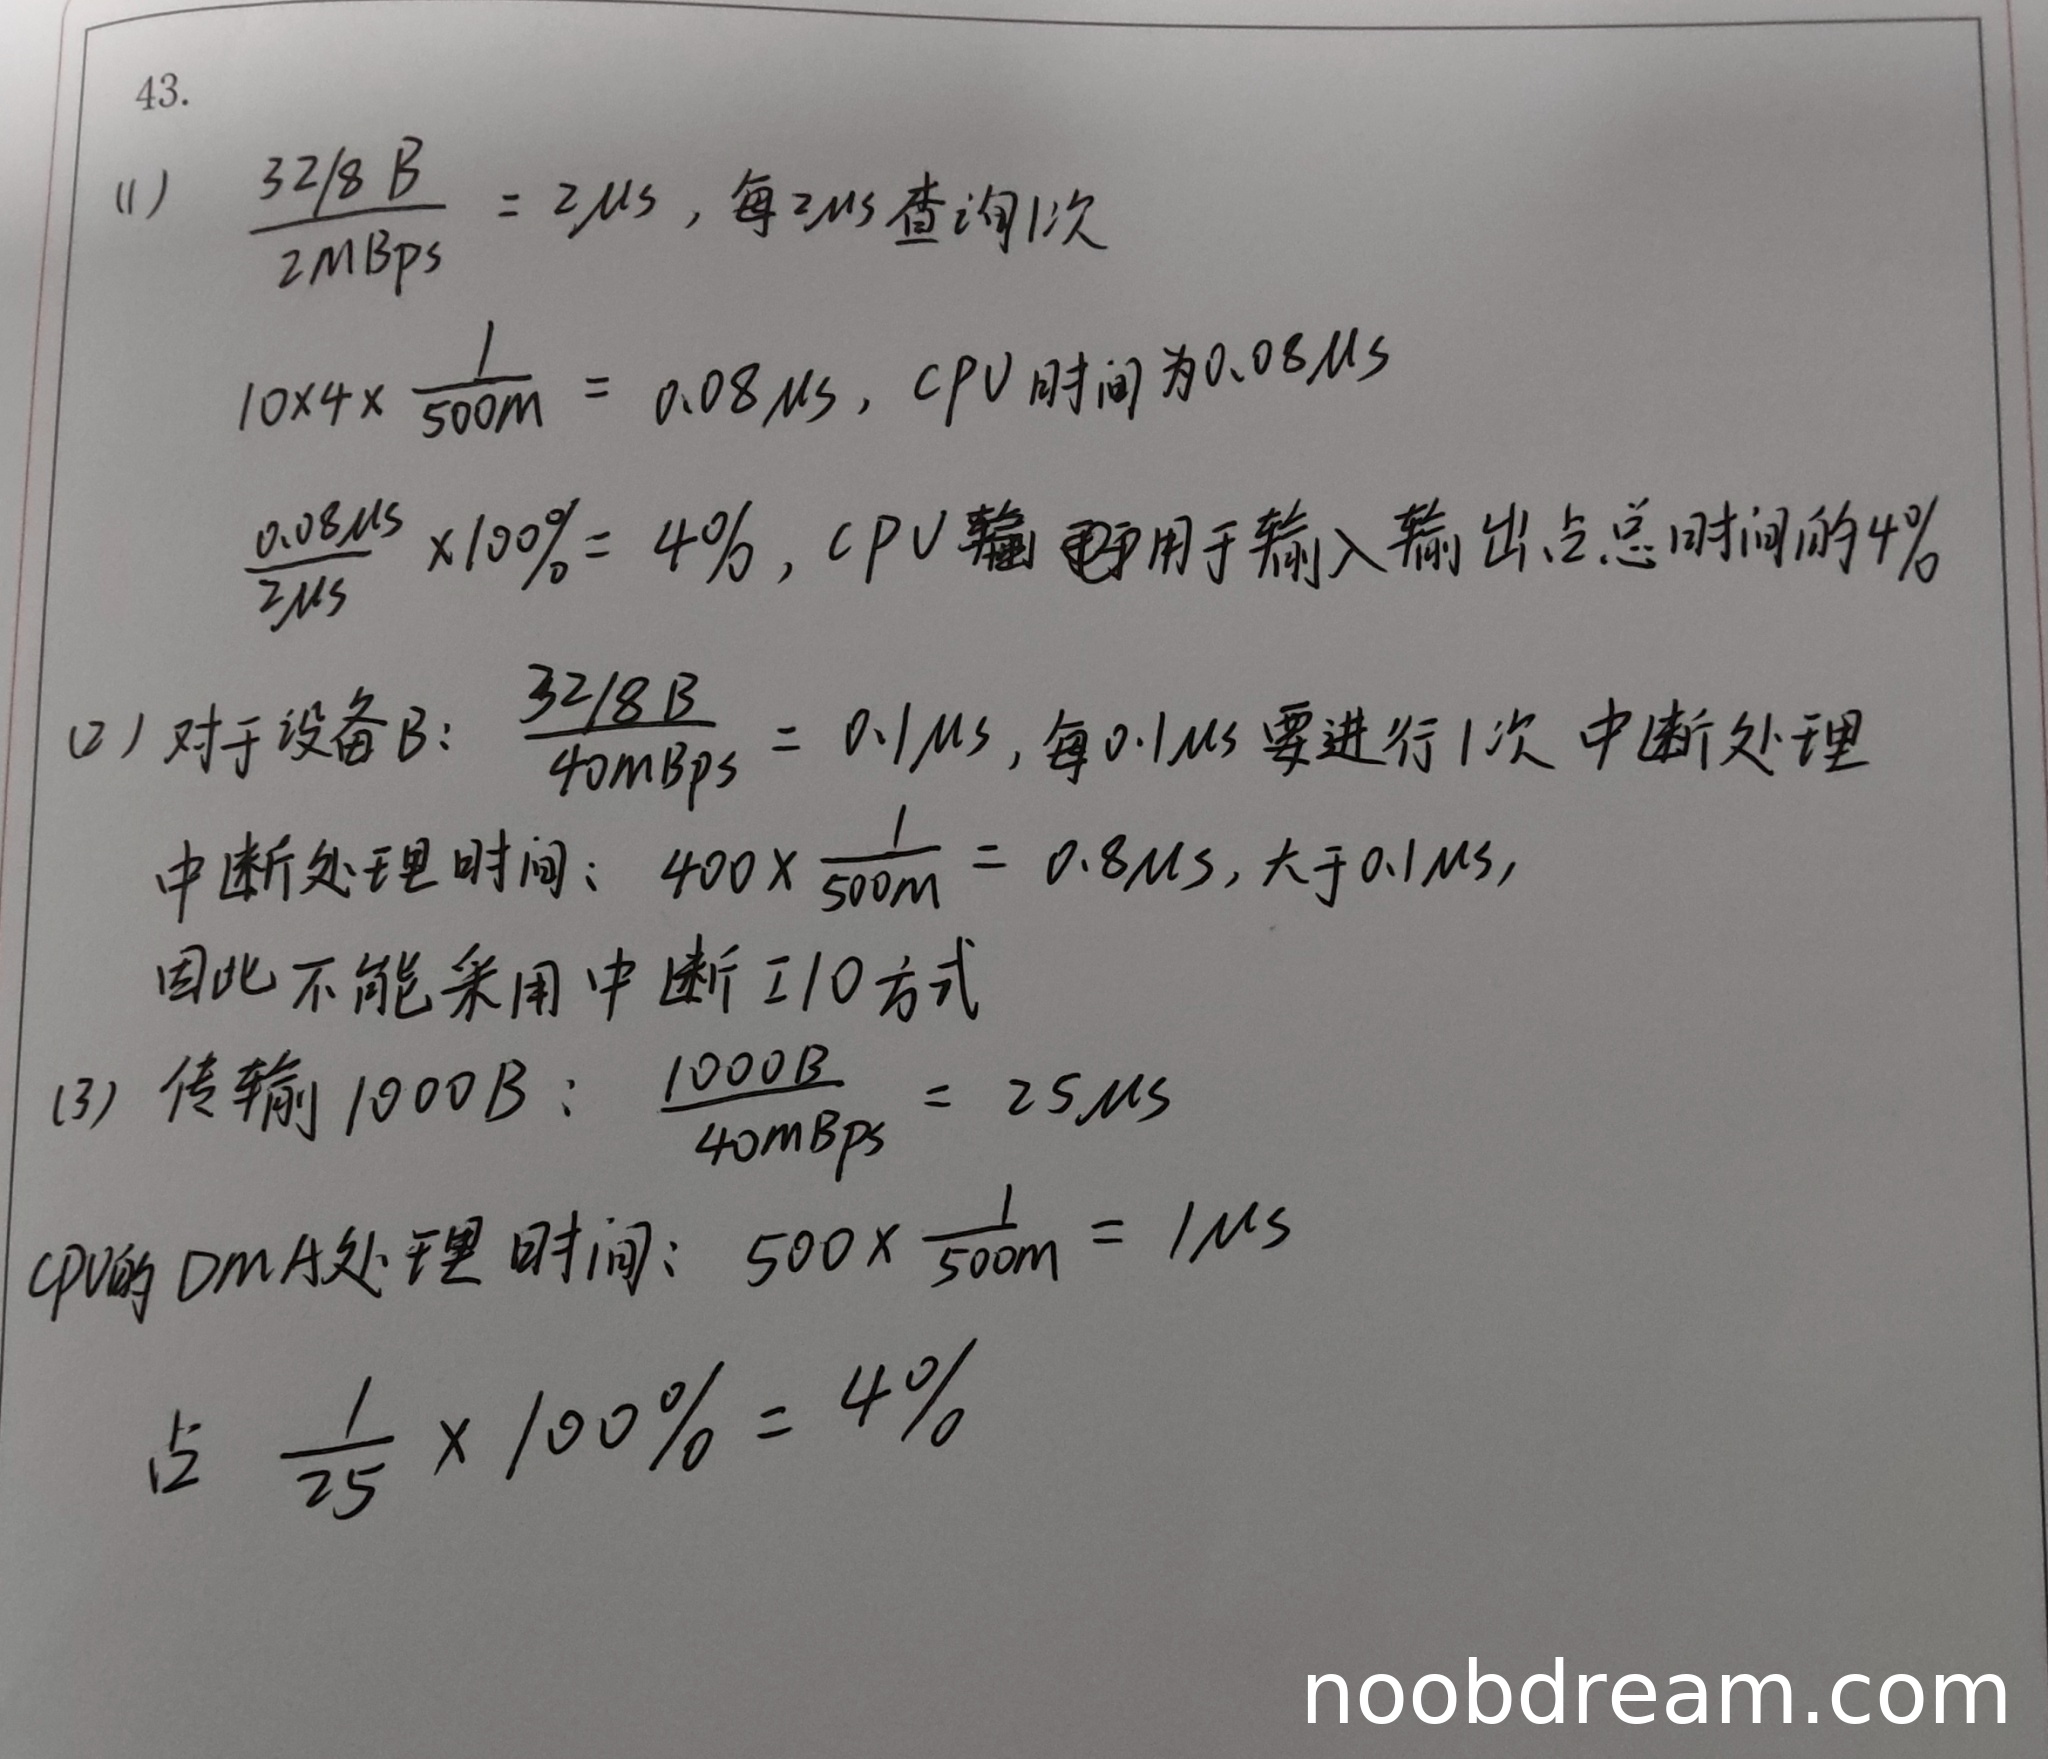 43.
(1) 32/8 B / 2MBps = 2μs, 每2μs查询1次
10×4× 1/500M = 0.08μs, CPU时间为0.08μs
0.08μs/2μs ×100% = 4%, CPU 用于输入输出占总时间的4%
(2) 对于设备B: 32/8 B / 40MBps = 0.1μs, 每0.1μs要进行1次中断处理
中断处理时间: 400× 1/500M = 0.8μs, 大于0.1μs,
因此不能采用中断I/O方式
(3) 传输1000B: 1000B/40MBps = 25μs
CPU的DMA处理时间: 500× 1/500M = 1μs
占 1/25 × 100% = 4%
noobdream.com